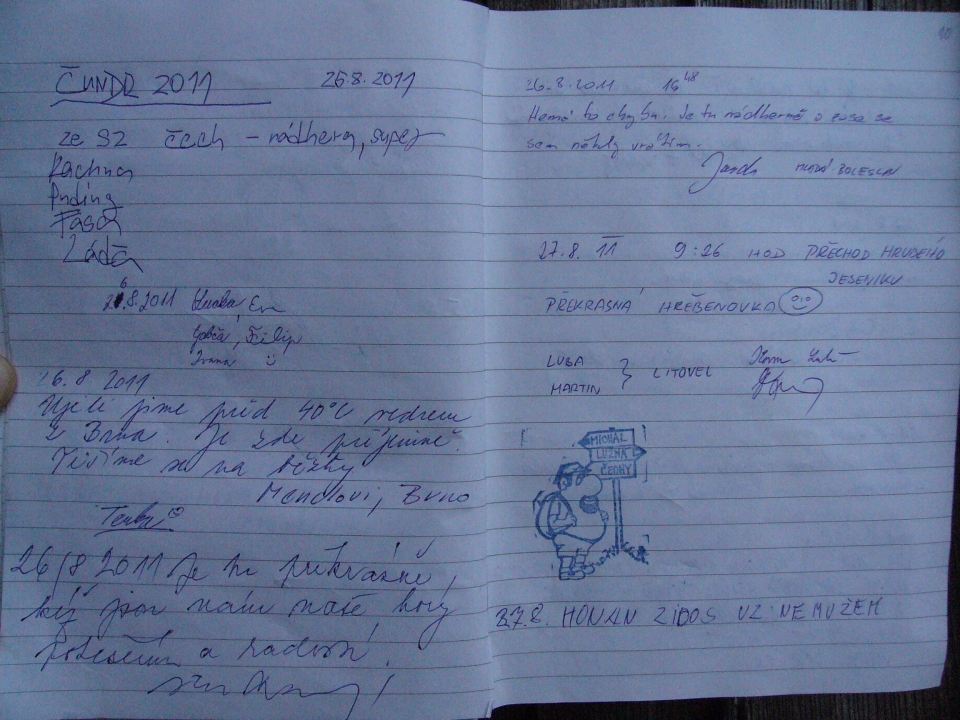 ČUNDR 2011 25.8.2011
ze SZ čech – nádhera, super
Kachna
Puding
Fasch
Láďa
26.8.2011 Eva
Gábča, Filip
Ivana
26.8 2011
Ujeli jsme před 40°C vedrem
z Brna. Je zde příjemně.
Těšíme se na běžky
Mendlovi, Brno
26/8 2011 Je tu překrásně,
kéž jsou nám naše hory
potěšením a radostí.
10
26.8.2011 16 48
Nemá to chybu. Je tu nádherně a zase se
sem někdy vrátím.
MLADÁ BOLESLAV
27.8. 11 9:26 HOD PŘECHOD HRUBÉHO
JESENÍKU
PŘEKRÁSNÁ HŘEBENOVKA
LUBA
MARTIN } LITOVEL
MICHAL
LUZNA
ČECHY
27.8. UZ NEMUŽEM